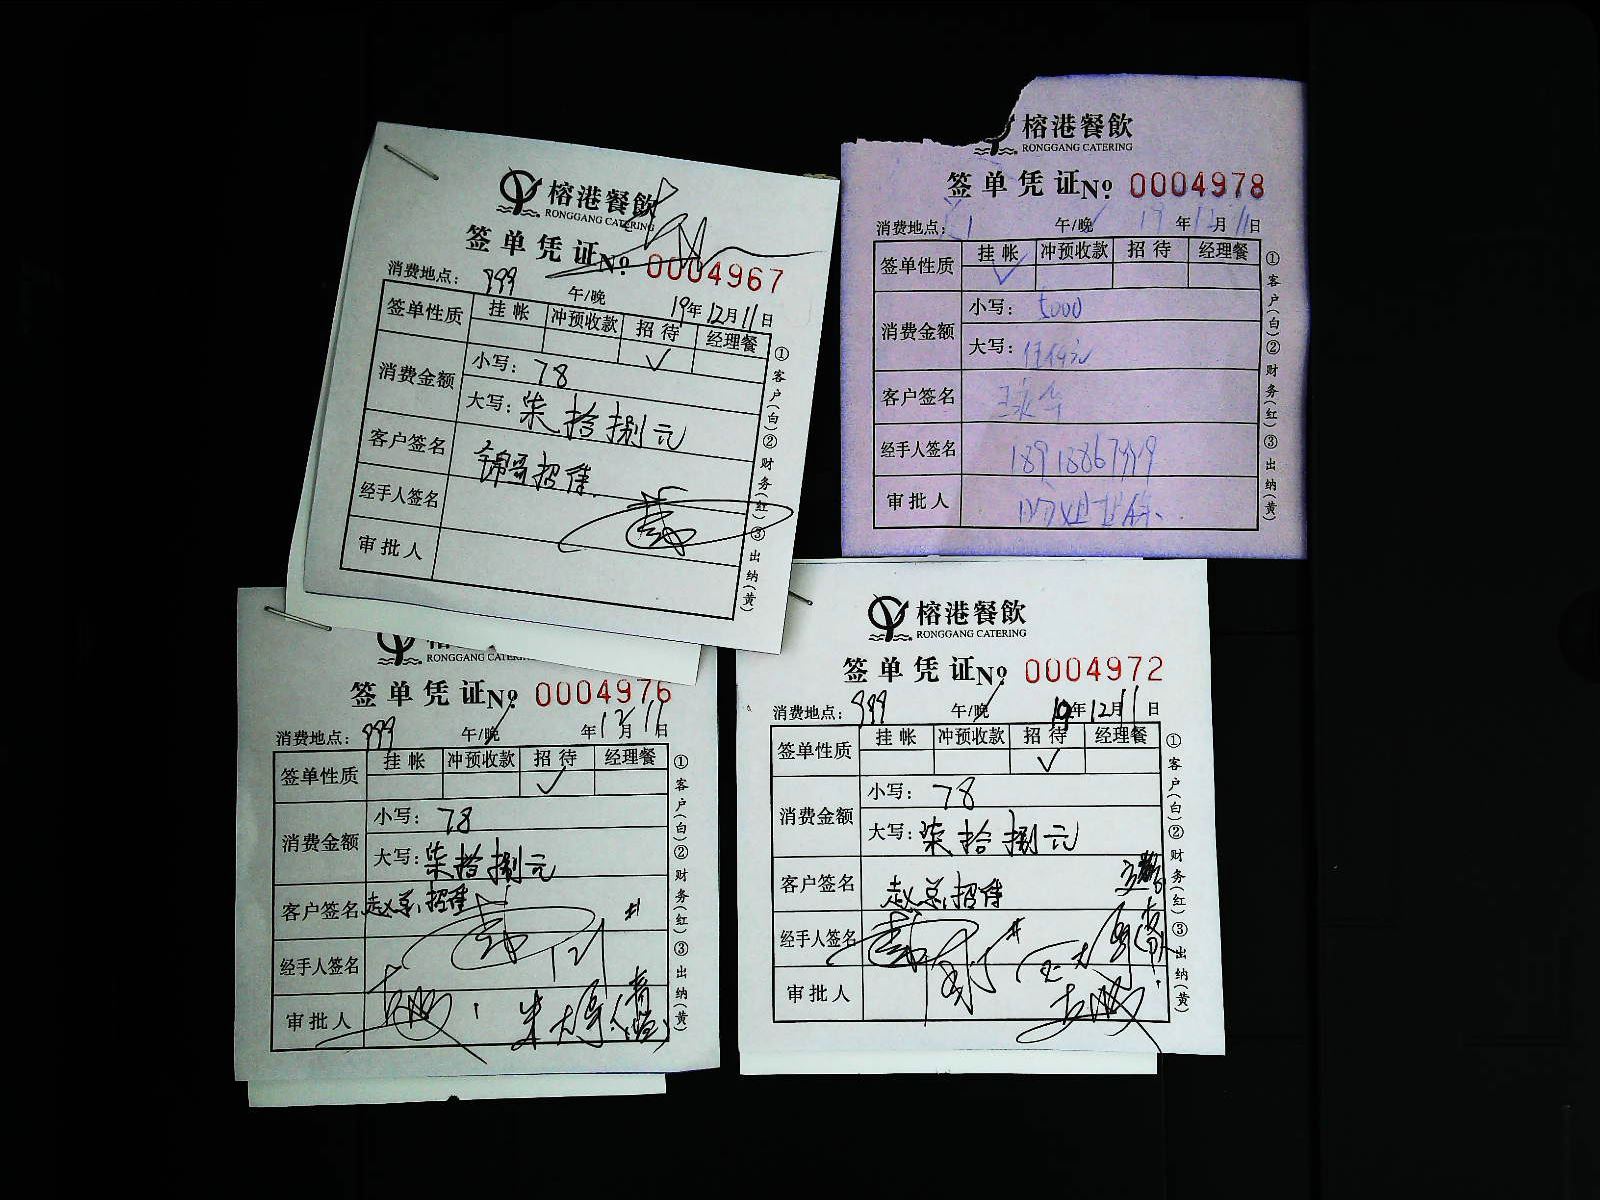 榕港餐飲
RONGGANG CATERING
签单凭证No. 0004967
消费地点: 999 午/晚 19年12月11日
签单性质 挂帐 冲预收款 招待 经理餐
✓
消费金额 小写: 78
大写: 柒拾捌元
客户签名 锦哥招待
经手人签名
审批人
①客户(白)②财务(红)③出纳(黄)
榕港餐飲
RONGGANG CATERING
签单凭证No. 0004978
消费地点: 午/晚 19年12月11日
签单性质 挂帐 冲预收款 招待 经理餐
✓
消费金额 小写: 5000
大写: 伍仟元
客户签名
经手人签名
审批人
①客户(白)②财务(红)③出纳(黄)
RONGGANG CATERING
签单凭证No. 0004976
消费地点: 999 午/晚 年12月11日
签单性质 挂帐 冲预收款 招待 经理餐
✓
消费金额 小写: 78
大写: 柒拾捌元
客户签名 赵总招待
经手人签名
审批人
①客户(白)②财务(红)③出纳(黄)
榕港餐飲
RONGGANG CATERING
签单凭证No. 0004972
消费地点: 999 午/晚 19年12月11日
签单性质 挂帐 冲预收款 招待 经理餐
✓
消费金额 小写: 78
大写: 柒拾捌元
客户签名 赵总招待
经手人签名
审批人
①客户(白)②财务(红)③出纳(黄)